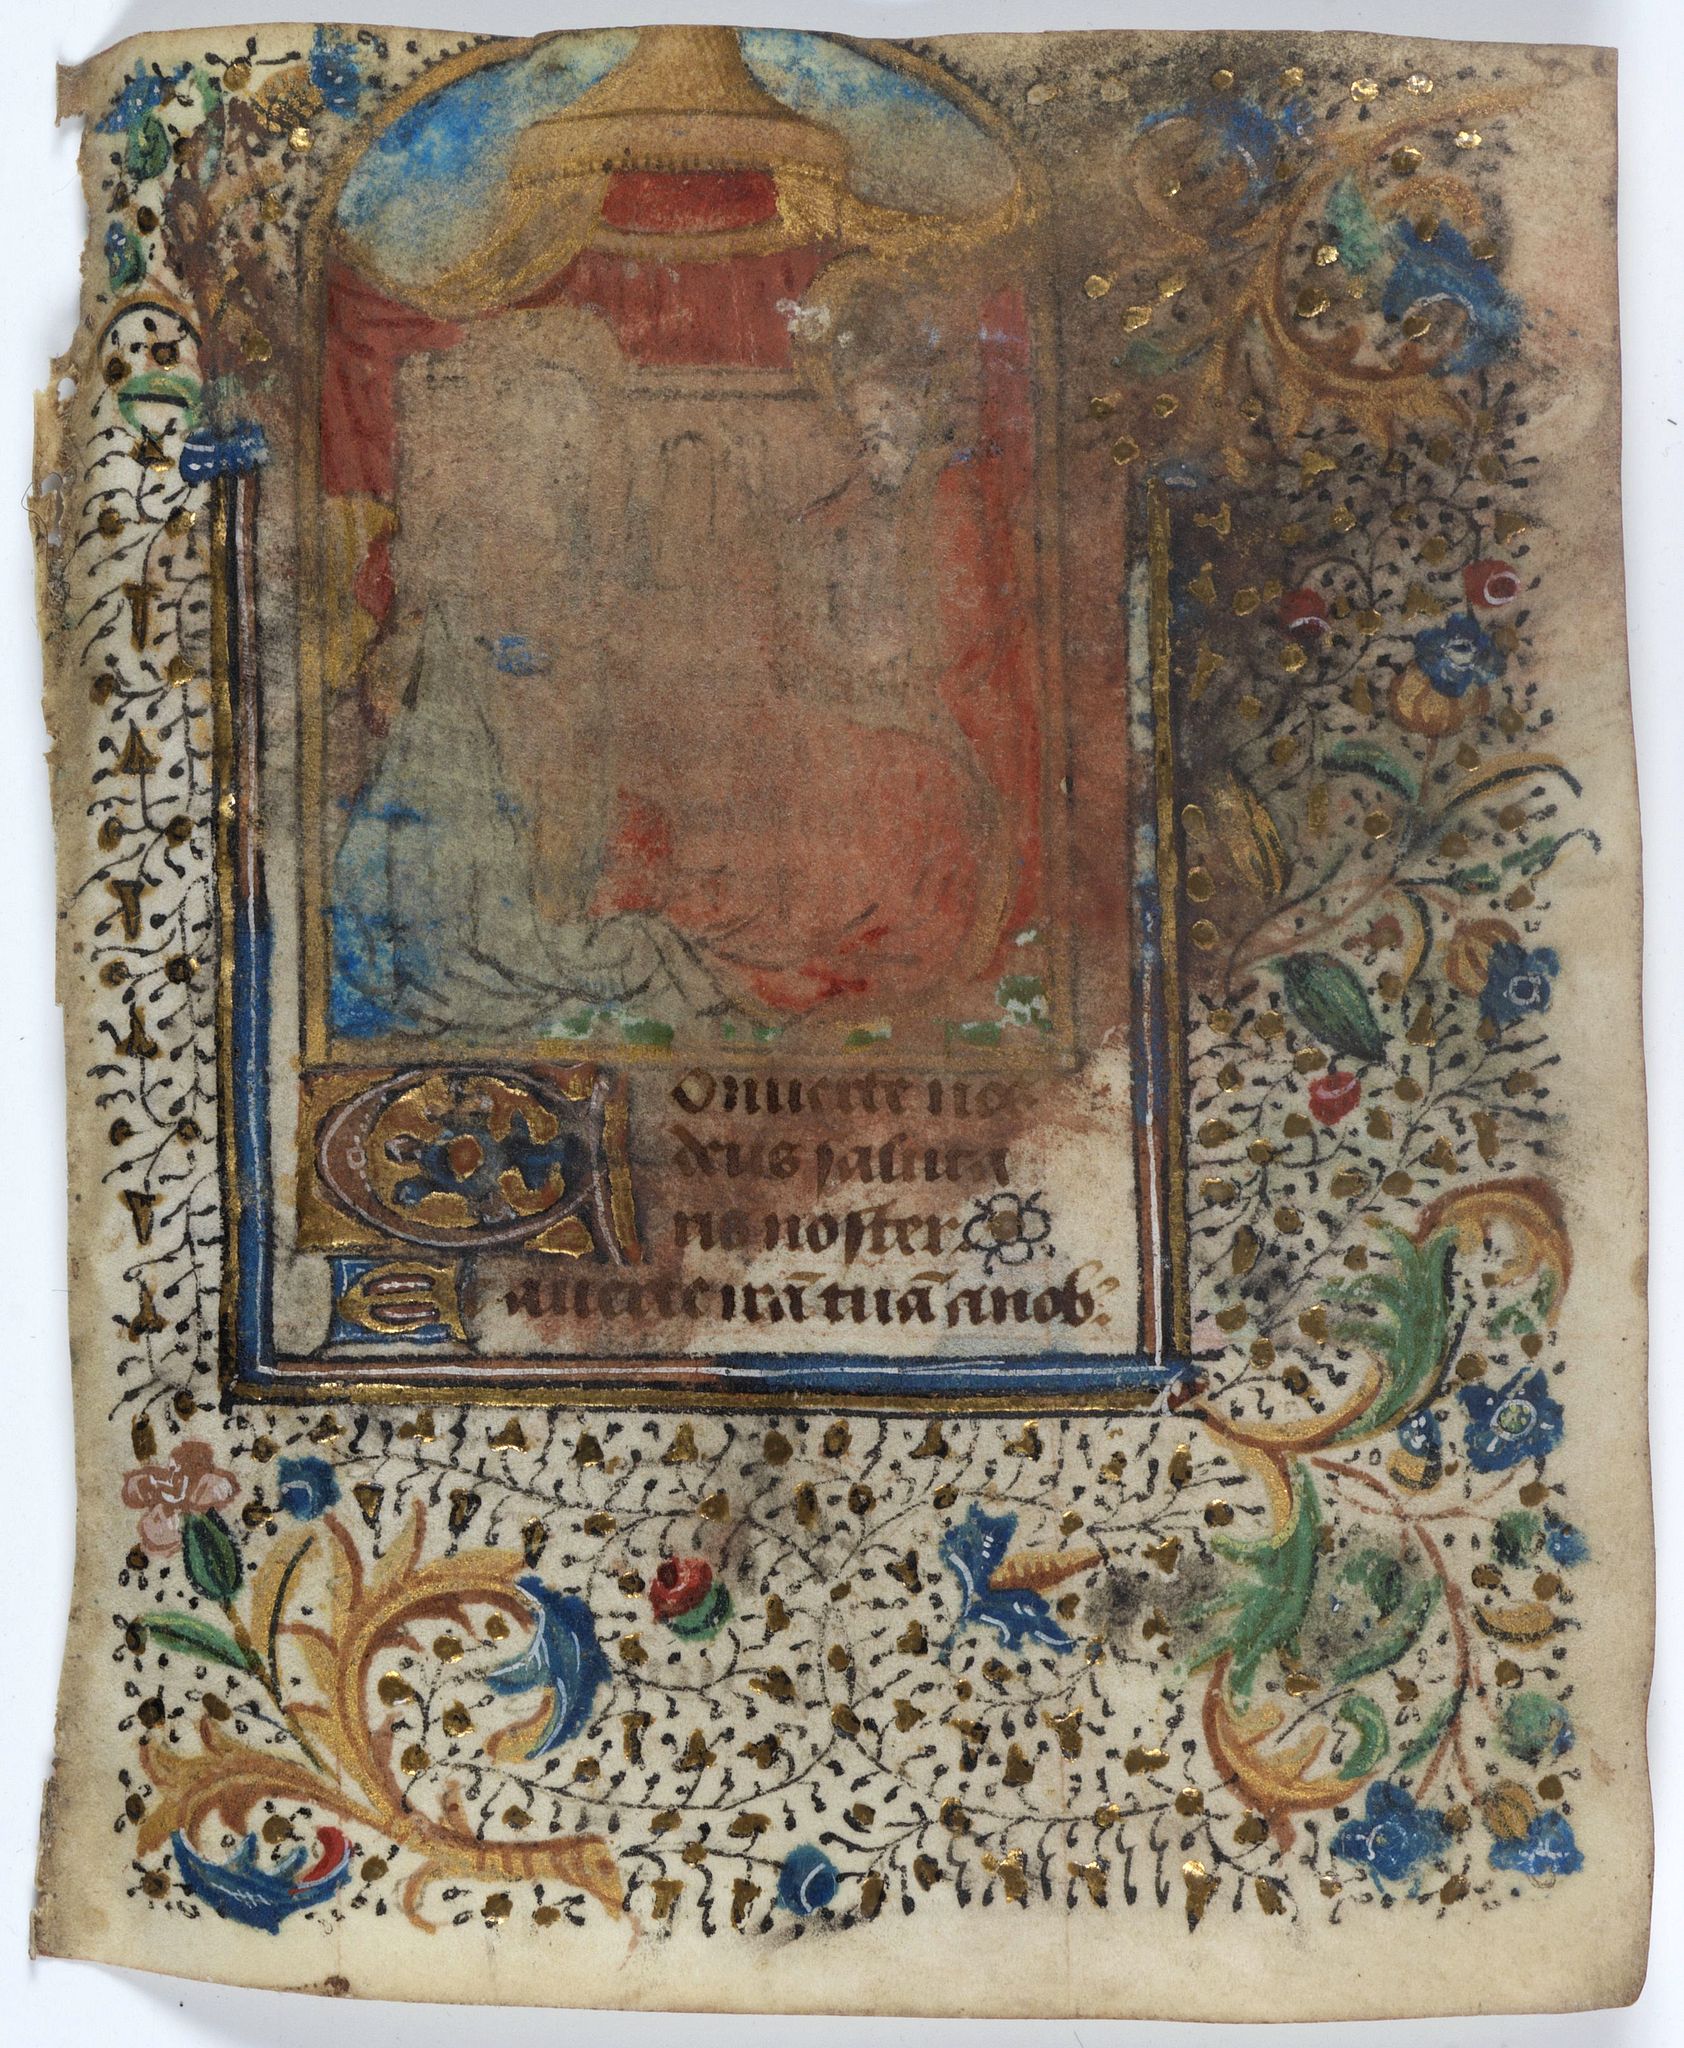 Conuerte nos
deus saluta
ris noster.
Et auerte irā tuā a nob